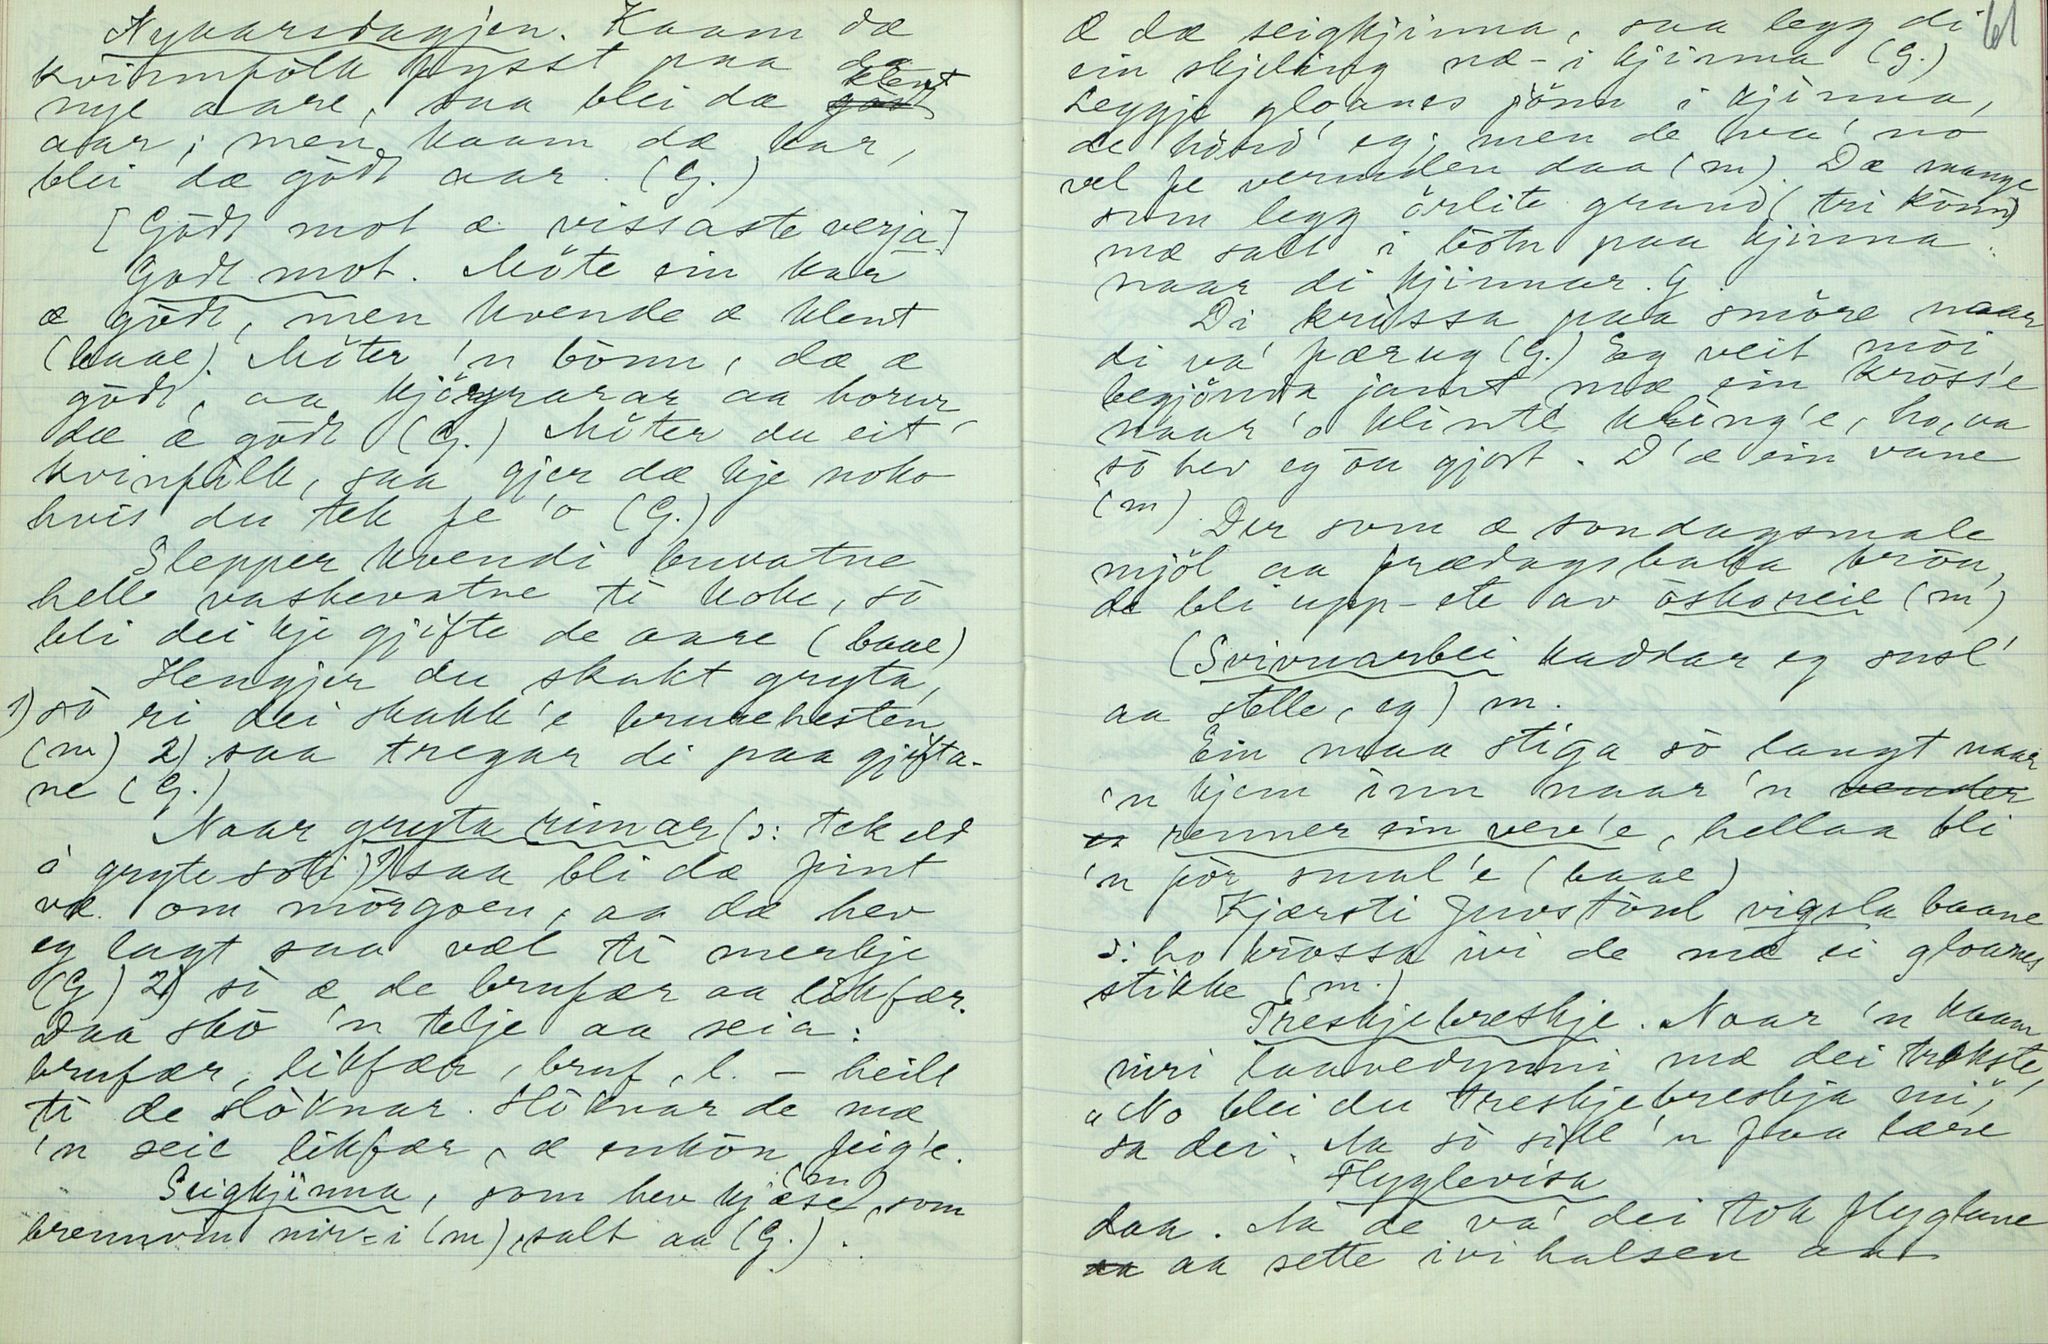 Nyaarsdagjen. Kaam dæ
kvinnfolk fysst paa da
nye aare, saa blei dæ klent
aar; men kaam dæ kar,
blei dæ gödt aar. (G.)
[Gödt mot æ vissaste verja]
Godt mot. Möte ein kar
æ gödt, men kvende æ klent
(baae). Möter 'n bönn, dæ æ
gödt, aa kjöryrarar aa horur
dæ æ gödt (G.) Möter du eit
kvinfolk, saa gjer dæ kje noko
hvis du tek je 'o (G.)
Slepper kvendi buvatne
helle vaskevatne ti koke, sö
bli dei kje gjifte de aare (baae)
Hengjer du skakt gryta,
1) sö ri dei skakk'e brurehesten
(m) 2) saa tregar di paa gjifta-
ne (G.)
Naar gryta rimar (ɔ: tek eld
i gryte soti) 1) saa bli dæ fint
ve om mörgoen, aa dæ hev
eg lagt saa væl ti merkje
(G) 2) sö æ de brufær aa likfær.
Daa sko 'n telje aa seia:
brufær, likfær, bruf, l. - heilt
ti de slöknar. Slöknar de mæ
'n seie likfær, æ enkön feig'e.
(m)
Seigkjinna, som hev kjæse, som
brennvin nir-i (m), salt aa (G.).
61
Æ dæ seigkjinna, saa legg di
ein skjeling næ-i kjinna (G.)
Leggje gloanes jönn i kjinna,
de höird' eg; men de va' no
vel fe verulden daa (m). Dæ mange
som legg örlite grand (tri könn)
mæ salt i botn paa kjinna
naar di kjinnar. G.
Di krussa paa smöre naar
di va' færug (G.) Eg veit möi
begjönda jamt mæ ein kross'e
naar 'o klinte kling'e, ho, aa
sö hev eg öu gjort. D'æ ein vane
(m)
Der som æ sondagsmale
mjöl aa frædagsbaka bröu,
de bli upp-ete av öskoreie (m)
(Svivuarbei kaddar eg susl'
aa stelle, eg) m.
Ein maa stiga sö langt naar
'n kjem inn naar 'n
renner ein vev'e, hellaa bli
'n för smal'e (baae)
Kjærsti Juvstöul vigsla baane
ɔ: ho krossa ivi de mæ ei gloanes
stikke (m.)
Treskjebreskje. Naar 'n kaam
niri laavedynni mæ dei trøkste,
"No blei du treskjebreskja mi",
sa dei. Aa sö sill 'n faa lære
Flyglevisa
daa. Aa de va' dei tok flyglane
aa sette ivi halsen aa